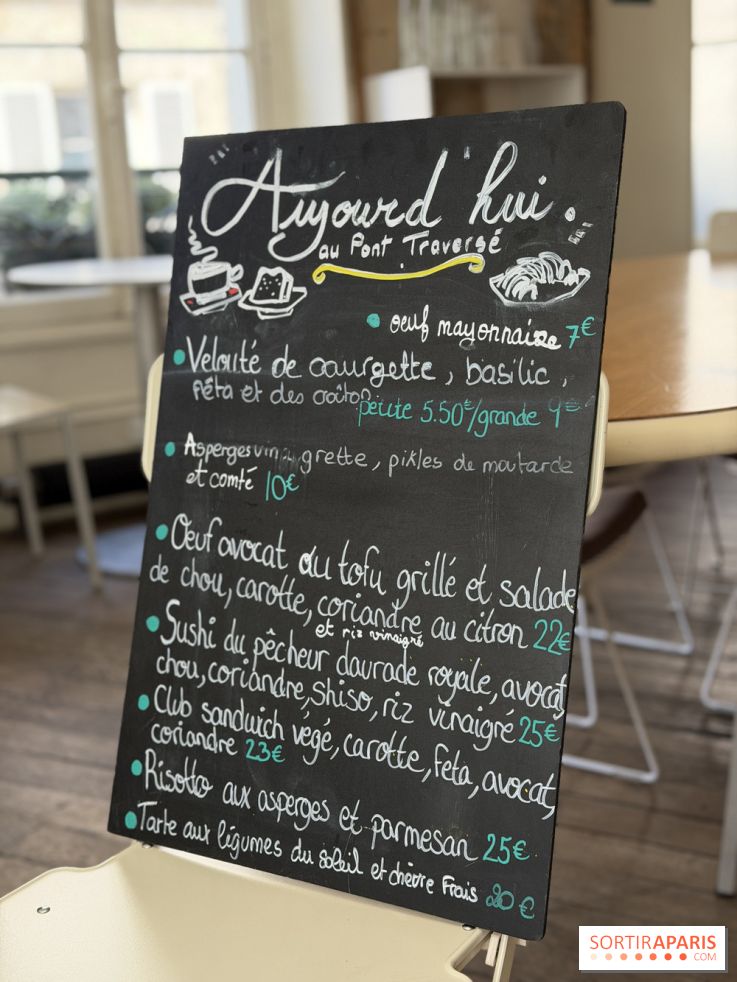 Aujourd'hui.
au Pont Traversé
oeuf mayonnaise 7€
Velouté de courgette, basilic,
féta et des croûtons
petite 5.50€/grande 9€
Asperges vinaigrette, pikles de moutarde
et comté 10€
Œuf avocat du tofu grillé et salade
de chou, carotte, coriandre au citron 22€
et riz vinaigré
Sushi du pêcheur daurade royale, avocat,
chou, coriandre, shiso, riz vinaigré 25€
Club sandwich végé, carotte, feta, avocat,
coriandre 23€
Risotto aux asperges et parmesan 25€
Tarte aux légumes du soleil et chèvre frais 20€
SORTIRAPARIS
.COM